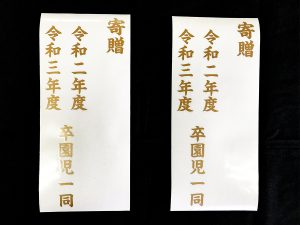 寄贈
令和二年度
令和三年度 卒園児一同
寄贈
令和二年度
令和三年度 卒園児一同